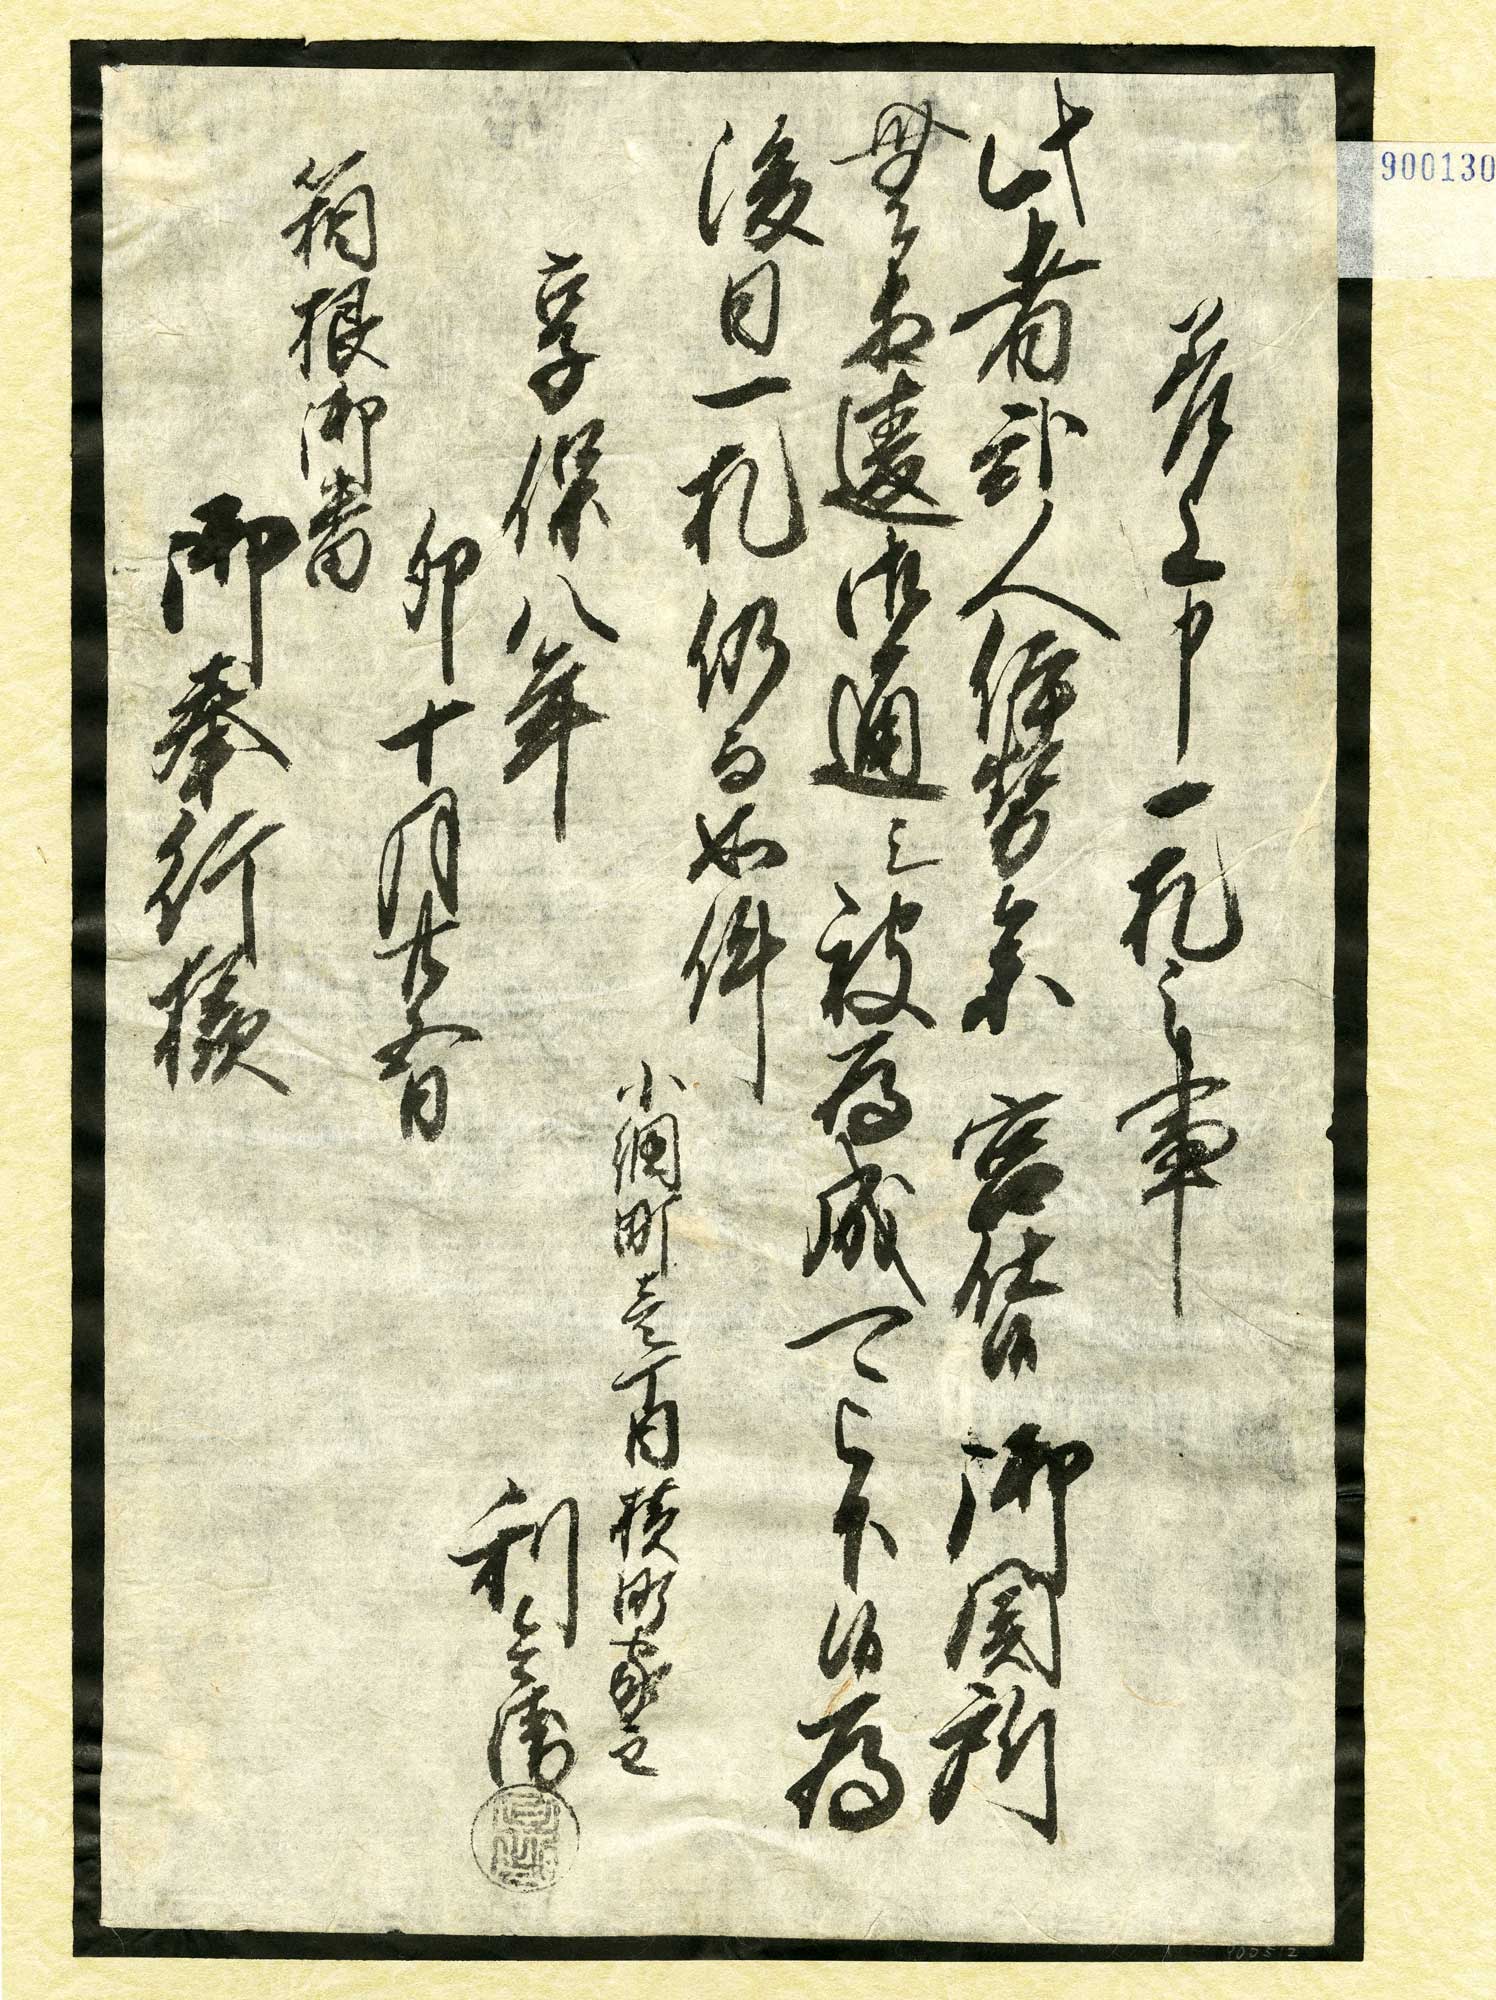 差上申一札之事
此者弐人伊勢参宮仕候 御関所
無相違御通シ被為成可被下候為
後日一札仍而如件
享保八年
卯十月廿五日
小網町壱丁目横町家主
利兵衛
箱根御番
御奉行様
900130